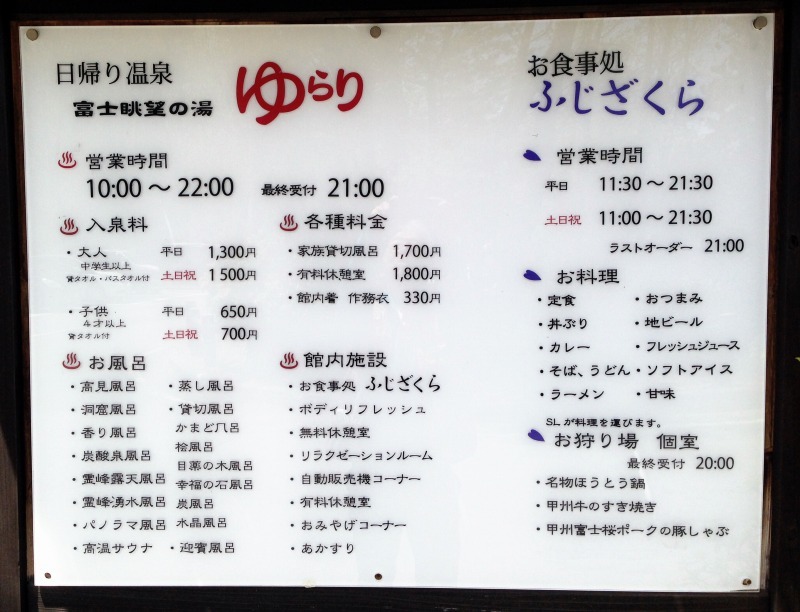 日帰り温泉
富士眺望の湯
ゆらり
営業時間
10:00 〜 22:00 最終受付 21:00
入泉料
・大人 平日 1,300円
中学生以上
貸タオル・バスタオル付 土日祝 1500円
・子供 平日 650円
4才以上
貸タオル付 土日祝 700円
各種料金
・家族貸切風呂 1,700円
・有料休憩室 1,800円
・館内着 作務衣 330円
お風呂
・高見風呂
・洞窟風呂
・香り風呂
・炭酸泉風呂
・霊峰露天風呂
・霊峰湧水風呂
・パノラマ風呂
・高温サウナ
・蒸し風呂
・貸切風呂
かまど風呂
桧風呂
目薬の木風呂
幸福の石風呂
炭風呂
水晶風呂
・迎賓風呂
館内施設
・お食事処 ふじざくら
・ボディリフレッシュ
・無料休憩室
・リラクゼーションルーム
・自動販売機コーナー
・有料休憩室
・おみやげコーナー
・あかすり
お食事処
ふじざくら
営業時間
平日 11:30 〜 21:30
土日祝 11:00 〜 21:30
ラストオーダー 21:00
お料理
・定食
・丼ぶり
・カレー
・そば、うどん
・ラーメン
・おつまみ
・地ビール
・フレッシュジュース
・ソフトアイス
・甘味
SLが料理を運びます。
お狩り場 個室
最終受付 20:00
・名物ほうとう鍋
・甲州牛のすき焼き
・甲州富士桜ポークの豚しゃぶ